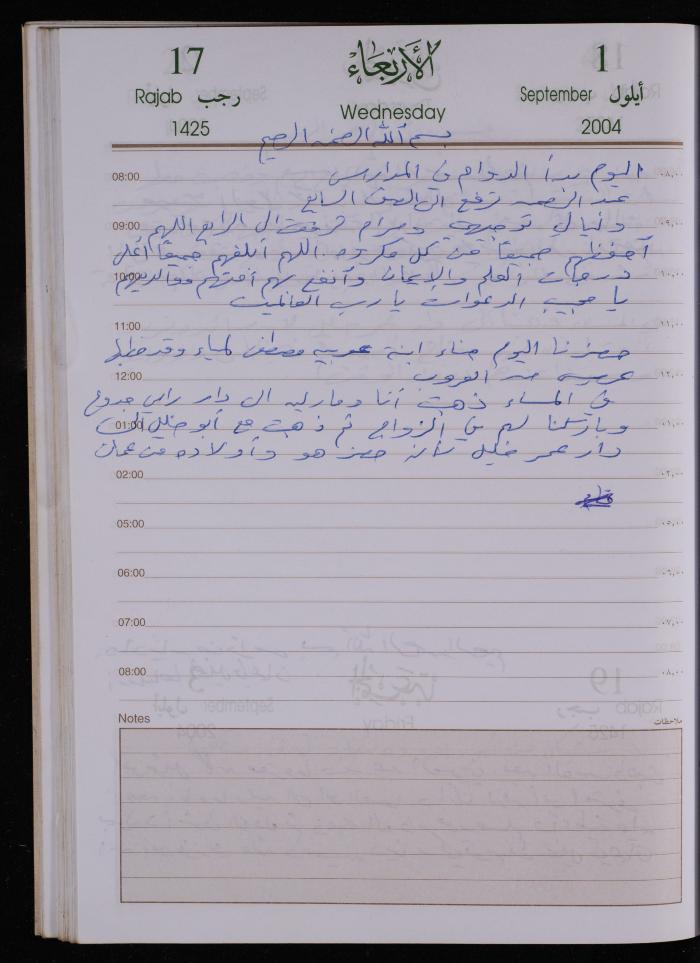 17
Rajab رجب
1425
الأربعاء
Wednesday
1
September أيلول
2004
بسم الله الرحمن الرحيم
08:00 اليوم بدأ الدوام في المدارس ٠٨,٠٠
عبد الرحمن ترفع الى الصف السابع
09:00 ودنيال توجيهي ومرام ترفعت الى الرابع اللهم ٠٩,٠٠
احفظهم جميعاً من كل مكروه. اللهم أبلغهم جميعاً أعلى
10:00 درجات العلم والإيمان وأنفع بهم أمتهم ووالديهم ١٠,٠٠
يا مجيب الدعوات يا رب العالمين
11:00 ١١,٠٠
حضرتنا اليوم هناء ابنة مصطفى لمياء وقد
12:00 عريس من ١٢,٠٠
في المساء ذهبت أنا ومارية الى دار رامي
01:00 وباركنا لهم في الزواج ثم ذهبت مع أبو خليل الى ٠١,٠٠
دار عمر خليل لأنه حضر هو وأولاده من عمان
02:00 ٠٢,٠٠
05:00 ٠٥,٠٠
06:00 ٠٦,٠٠
07:00 ٠٧,٠٠
08:00 ٠٨,٠٠
Notes ملاحظات